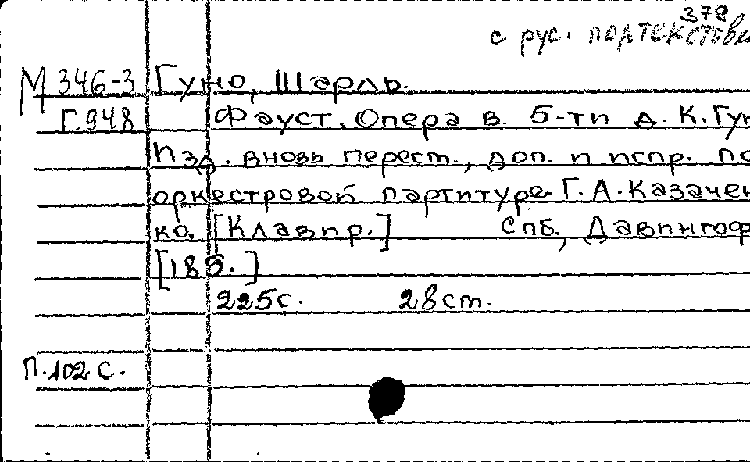 378
с рус. подтекстов
М 346-3 Гуно, Шарль.
Г.948 Фауст. Опера в 5-ти д. К. Гун
Изд. вновь перест., доп. и испр. по
оркестровой партитуре Г. А. Казачен
ко. [Клавир.] СПб., Давингоф
[189.]
225с. 28 ст.
П.102 с.